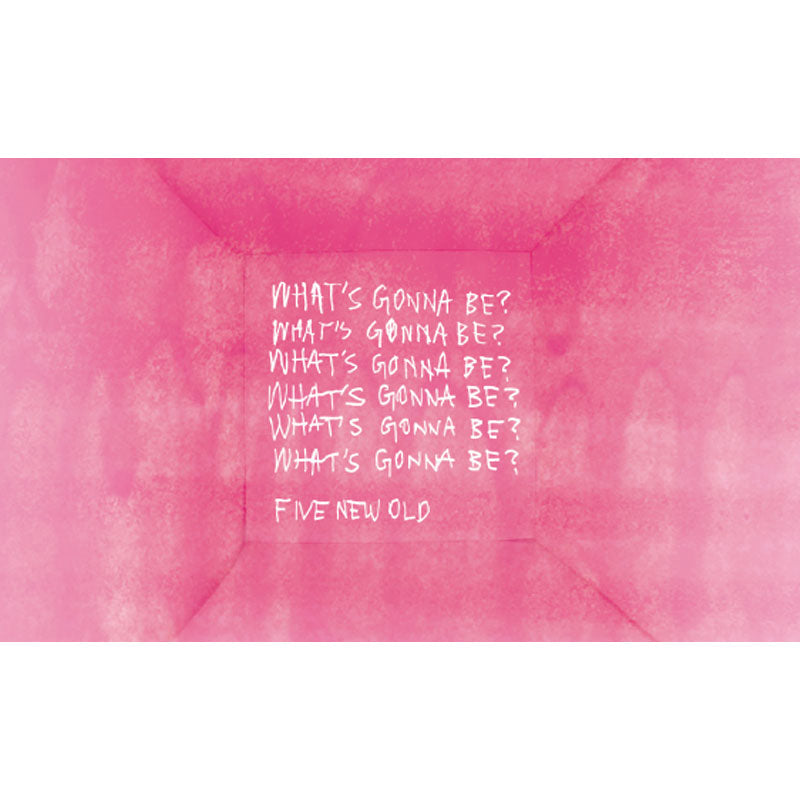 WHAT'S GONNA BE?
WHAT'S GONNA BE?
WHAT'S GONNA BE?
WHAT'S GONNA BE?
WHAT'S GONNA BE?
WHAT'S GONNA BE?
FIVE NEW OLD